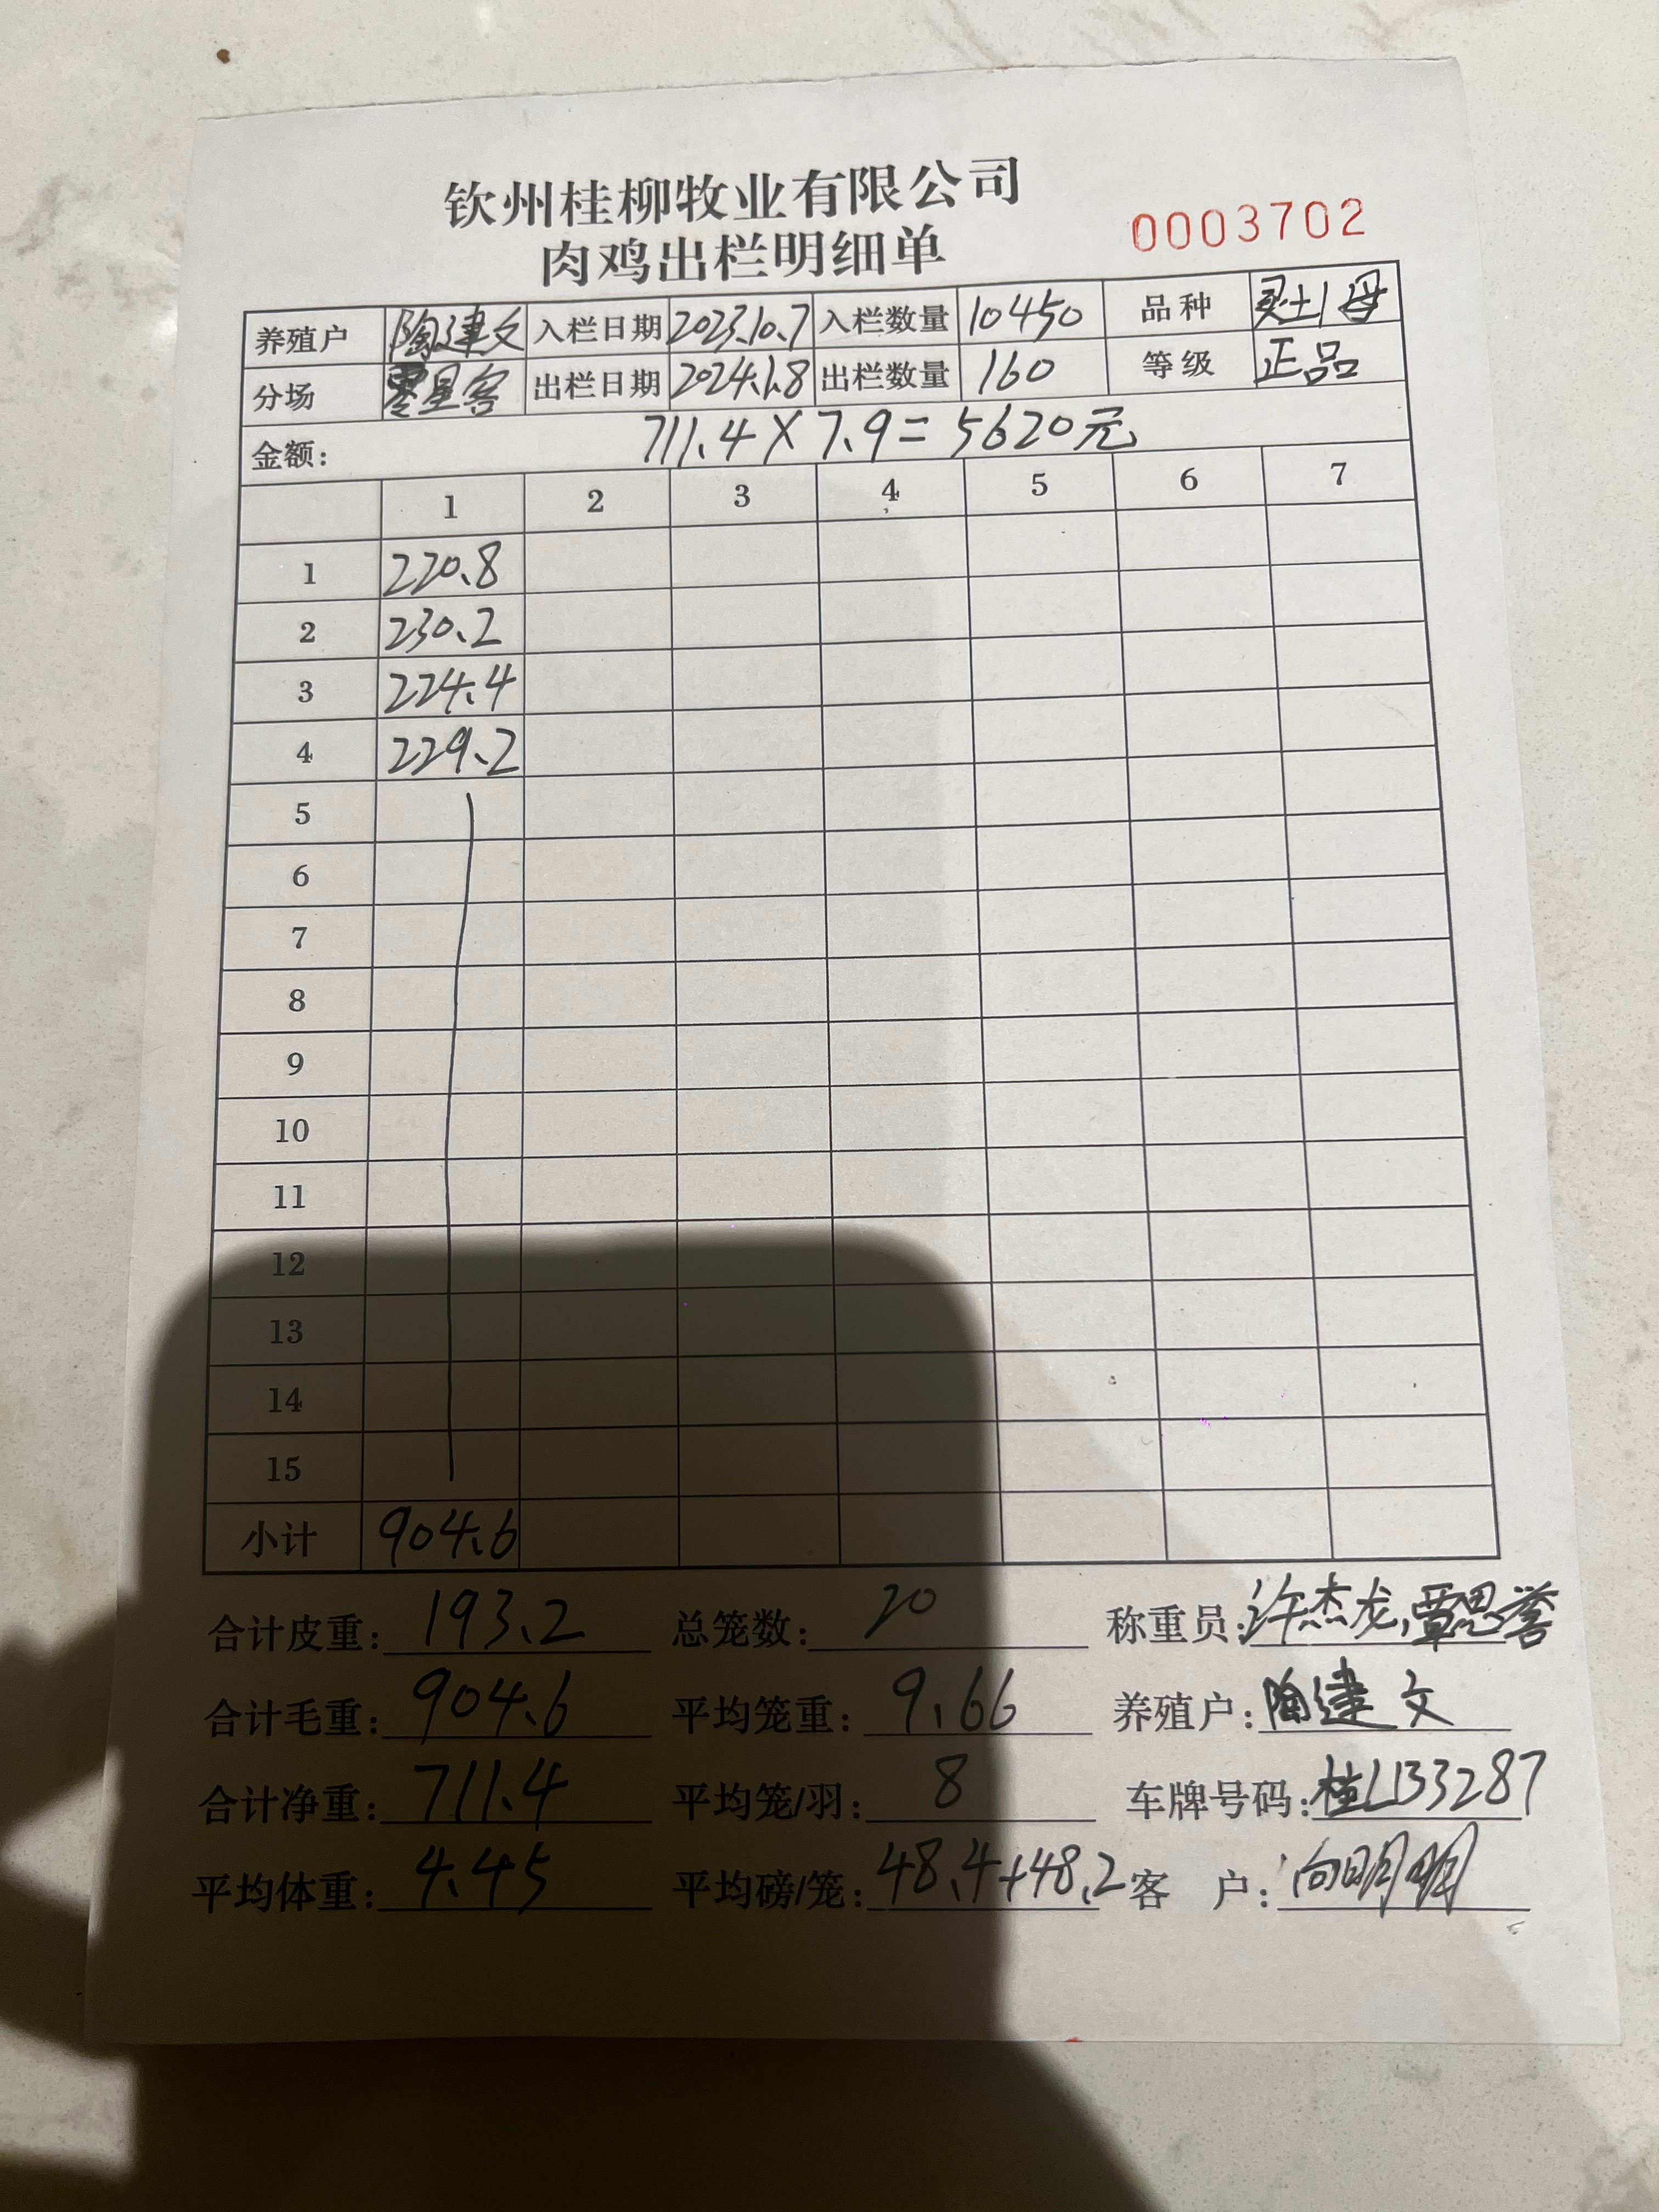 钦州桂柳牧业有限公司
肉鸡出栏明细单 0003702
养殖户 陶建文 入栏日期 2023.10.7 入栏数量 10450 品种 灵土1母
分场 零星客 出栏日期 2024.1.8 出栏数量 160 等级 正品
金额: 711.4×7.9=5620元
1 2 3 4 5 6 7
1 220.8
2 230.2
3 224.4
4 229.2
5
6
7
8
9
10
11
12
13
14
15
小计 904.6
合计皮重: 193.2 总笼数: 20 称重员: 许杰龙,覃思誉
合计毛重: 904.6 平均笼重: 9.66 养殖户: 陶建文
合计净重: 711.4 平均笼/羽: 8 车牌号码: 桂L133287
平均体重: 4.45 平均磅/笼: 48.4+48.2 客 户: 向明明